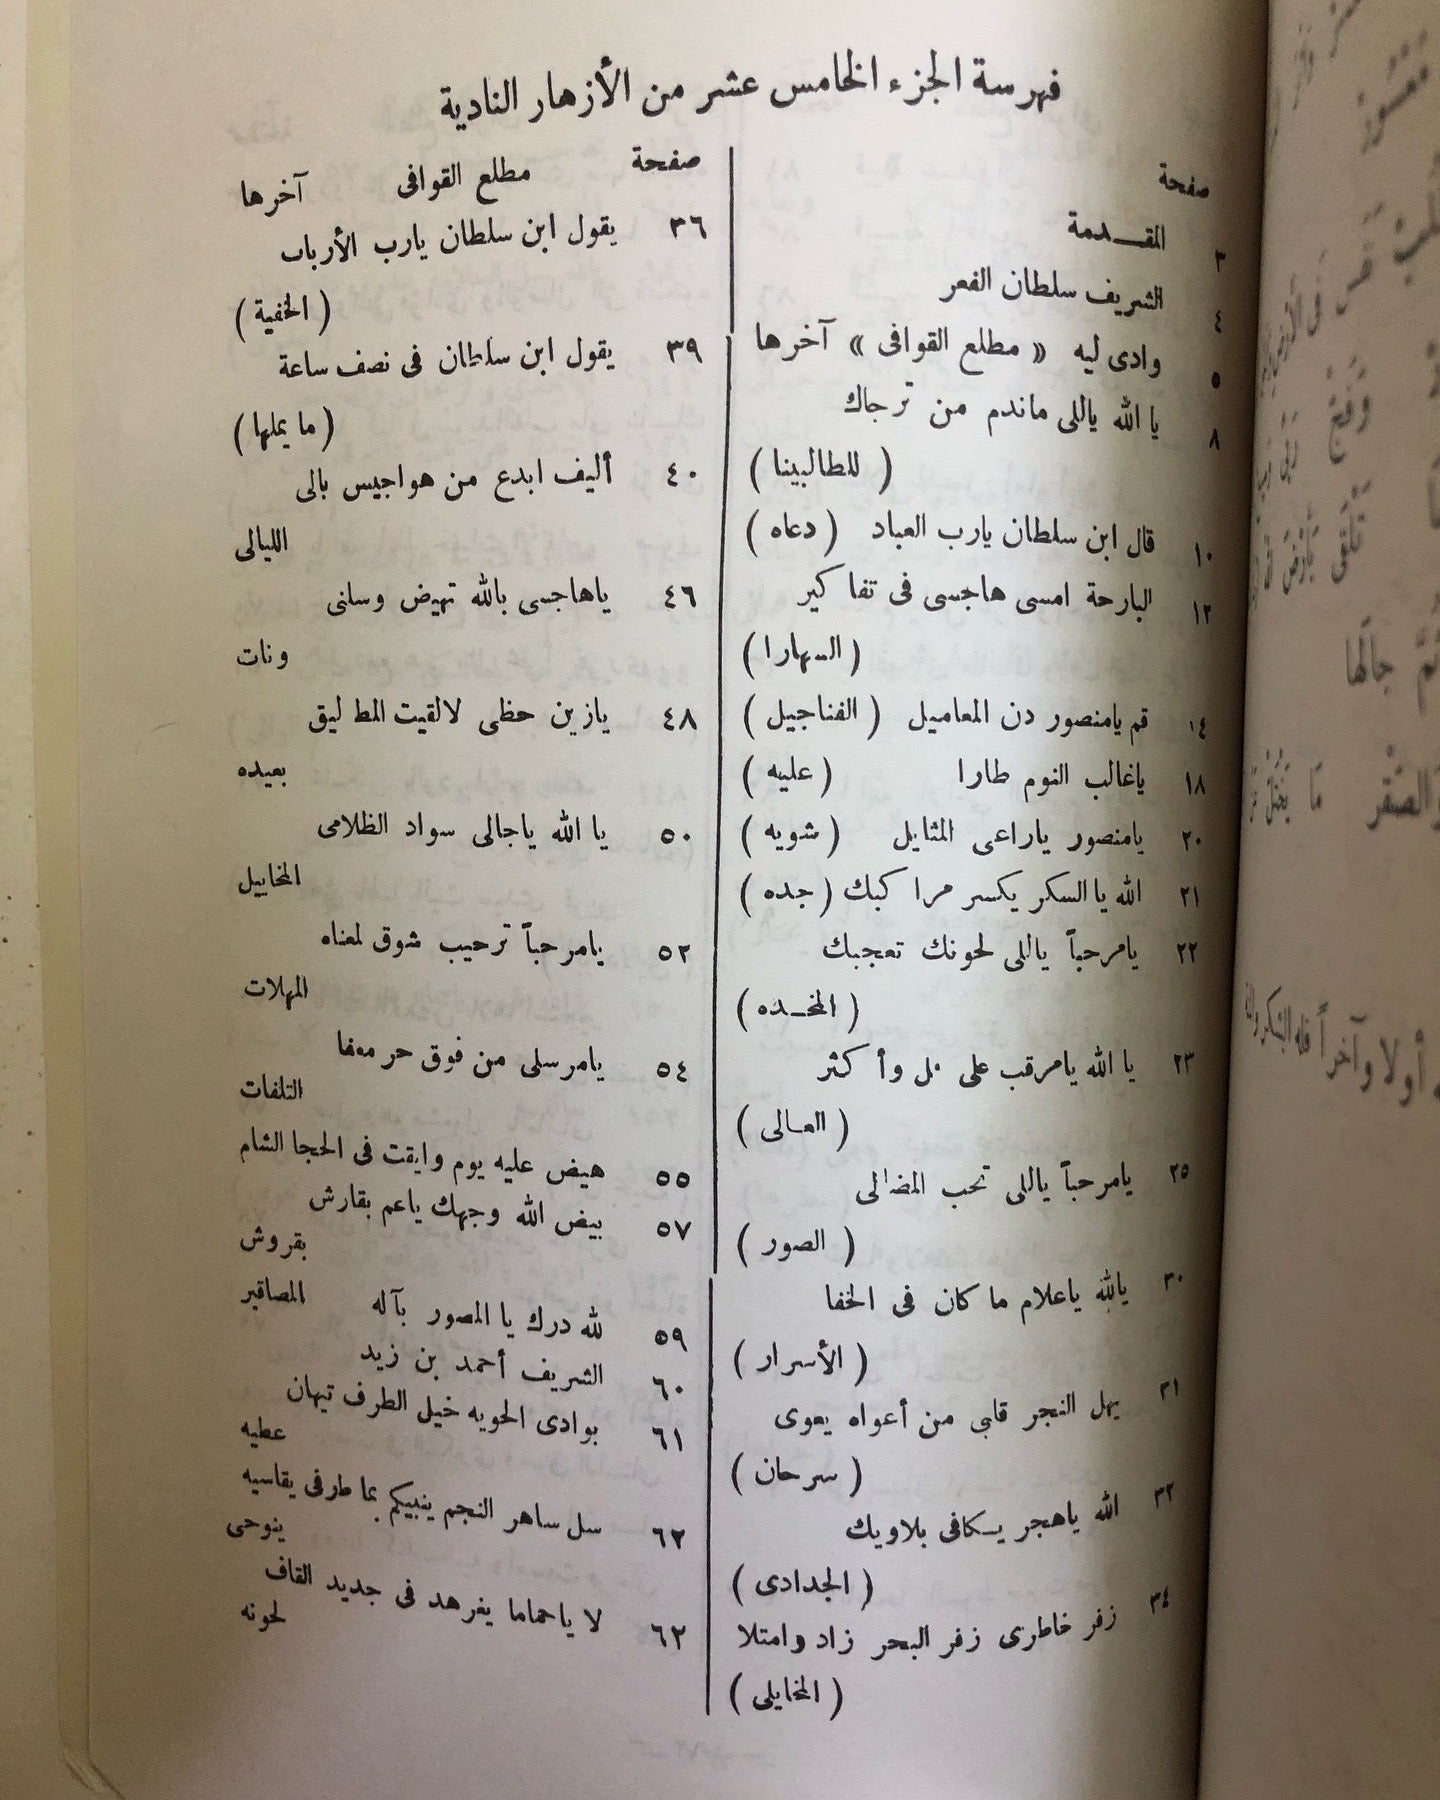 فهرسة الجزء الخامس عشر من الأزهار النادية
صفحة
٣ المقدمة
٤ الشريف سلطان الفعر
٥ وادى ليه « مطلع القوافى » آخرها
٨ يا الله ياللى ماندم من ترجاك
( للطالبينا )
١٠ قال ابن سلطان يارب العباد ( دعاه )
١٢ البارحة امسى هاجسى فى تفاكير
( السهارا )
١٤ قم يامنصور دن المعاميل ( الفناجيل )
١٨ ياغالب النوم طارا ( عليه )
٢٠ يامنصور ياراعى المثايل ( شويه )
٢١ الله يا السكر يكسر مراكبك ( جده )
٢٢ يامرحباً ياللى لحونك تعجبك
( المخده )
٢٣ يا الله يامرقب على بل وأكثر
( العالى )
٢٥ يامرحباً ياللى تحب
( الصور )
٣٠ يالله ياعلام ما كان فى الخفا
( الأسرار )
٣١ يهل النجر قلبى من أعواه يعوى
( سرحان )
٣٢ الله ياهجر يسكافى بلاويك
( الجدادى )
٣٤ زفر خاطرى زفر البحر زاد وامتلا
( المخايلى )
صفحة مطلع القوافى آخرها
٣٦ يقول ابن سلطان يارب الأرباب
( الخفية )
٣٩ يقول ابن سلطان فى نصف ساعة
( ما يملها )
٤٠ أليف ابدع من هواجيس بالى
الليالى
٤٦ ياهاجسى بالله تهيض وسلنى
ونات
٤٨ يازين حظى لالقيت المطاليق
بعيده
٥٠ يا الله ياجالى سواد الظلامى
المخاييل
٥٢ يامرحباً ترحيب شوق لمعناه
المهلات
٥٤ يامرسلى من فوق حر
التلفات
٥٥ هيض عليه يوم وايقت فى الحجا الشام
٥٧ بيض الله وجهك ياعم بقارش
بقروش
٥٩ لله درك يا المصور بآله المصاقير
٦٠ الشريف أحمد بن زيد
٦١ بوادى الحويه خيل الطرف تيهان
عطيه
٦٢ سل ساهر النجم ينبيكم بما طرفى يقاسيه
ينوحى
٦٢ لا ياحماما يغرهد فى جديد القاف
لحونه